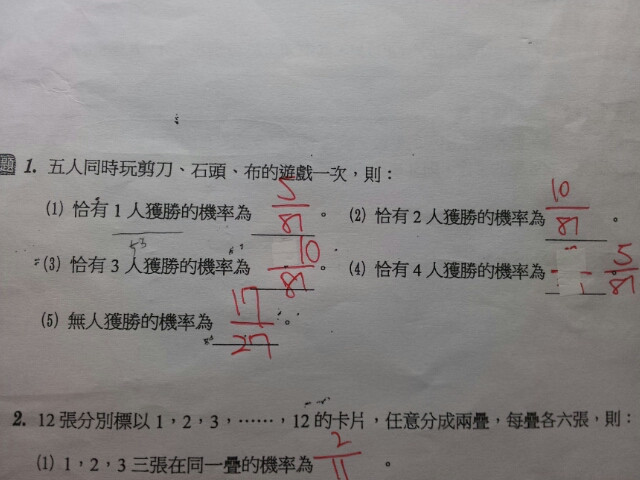 題 1. 五人同時玩剪刀、石頭、布的遊戲一次，則：
(1) 恰有 1 人獲勝的機率為 5/81 。 (2) 恰有 2 人獲勝的機率為 10/81 。
(3) 恰有 3 人獲勝的機率為 10/81 。 (4) 恰有 4 人獲勝的機率為 5/81 。
(5) 無人獲勝的機率為 17/27 。
2. 12 張分別標以 1，2，3，……，12 的卡片，任意分成兩疊，每疊各六張，則：
(1) 1，2，3 三張在同一疊的機率為 2/11 。